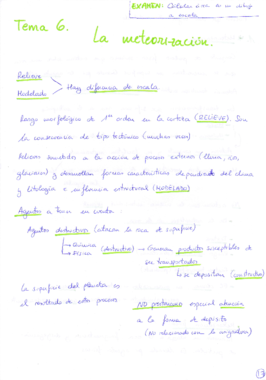 EXAMEN: Calcular área de un dibujo a escala
Tema 6.
La meteorización.
Relieve
Modelado
Hay diferencia de escala
Rasgo morfológico de 1er orden en la corteza (RELIEVE). Son
la consecuencia de tipo tectónico (muchas veces)
Relieves sometidos a la acción de procesos externos (lluvia, ríos,
glaciares) y desarrollan formas características dependiendo del clima
y litología e influencia estructural (MODELADO)
Agentes a Tener en cuenta
Agentes destructivos (atacan la roca de superficie)
Química
Física
(destructivo) → Generan productos susceptibles de
ser transportados
↓ se depositan (constructivo)
La superficie del planeta es
el resultado de estos procesos
NO prestaremos especial atención
a la forma de depósito
(No relacionado con la ingeniería)